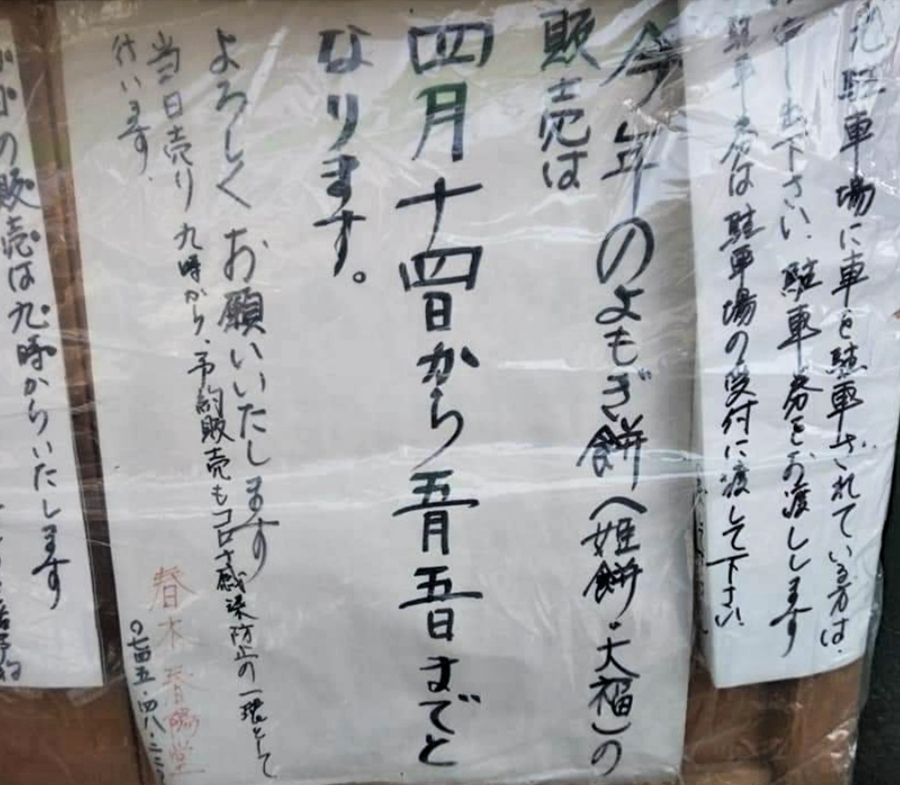 駐車場に車を駐車されている方は、
下さい、駐車券をお渡しします
駐車券は駐車場の受付に渡して下さい、
今年のよもぎ餅(姫餅・大福)の
販売は
四月十四日から五月五日までと
なります。
よろしくお願いいたします
当日売り九時から、予約販売もコロナ感染防止の一環として
行います、
春木春陽堂
〇七四五・四八・二
の販売は九時からいたします